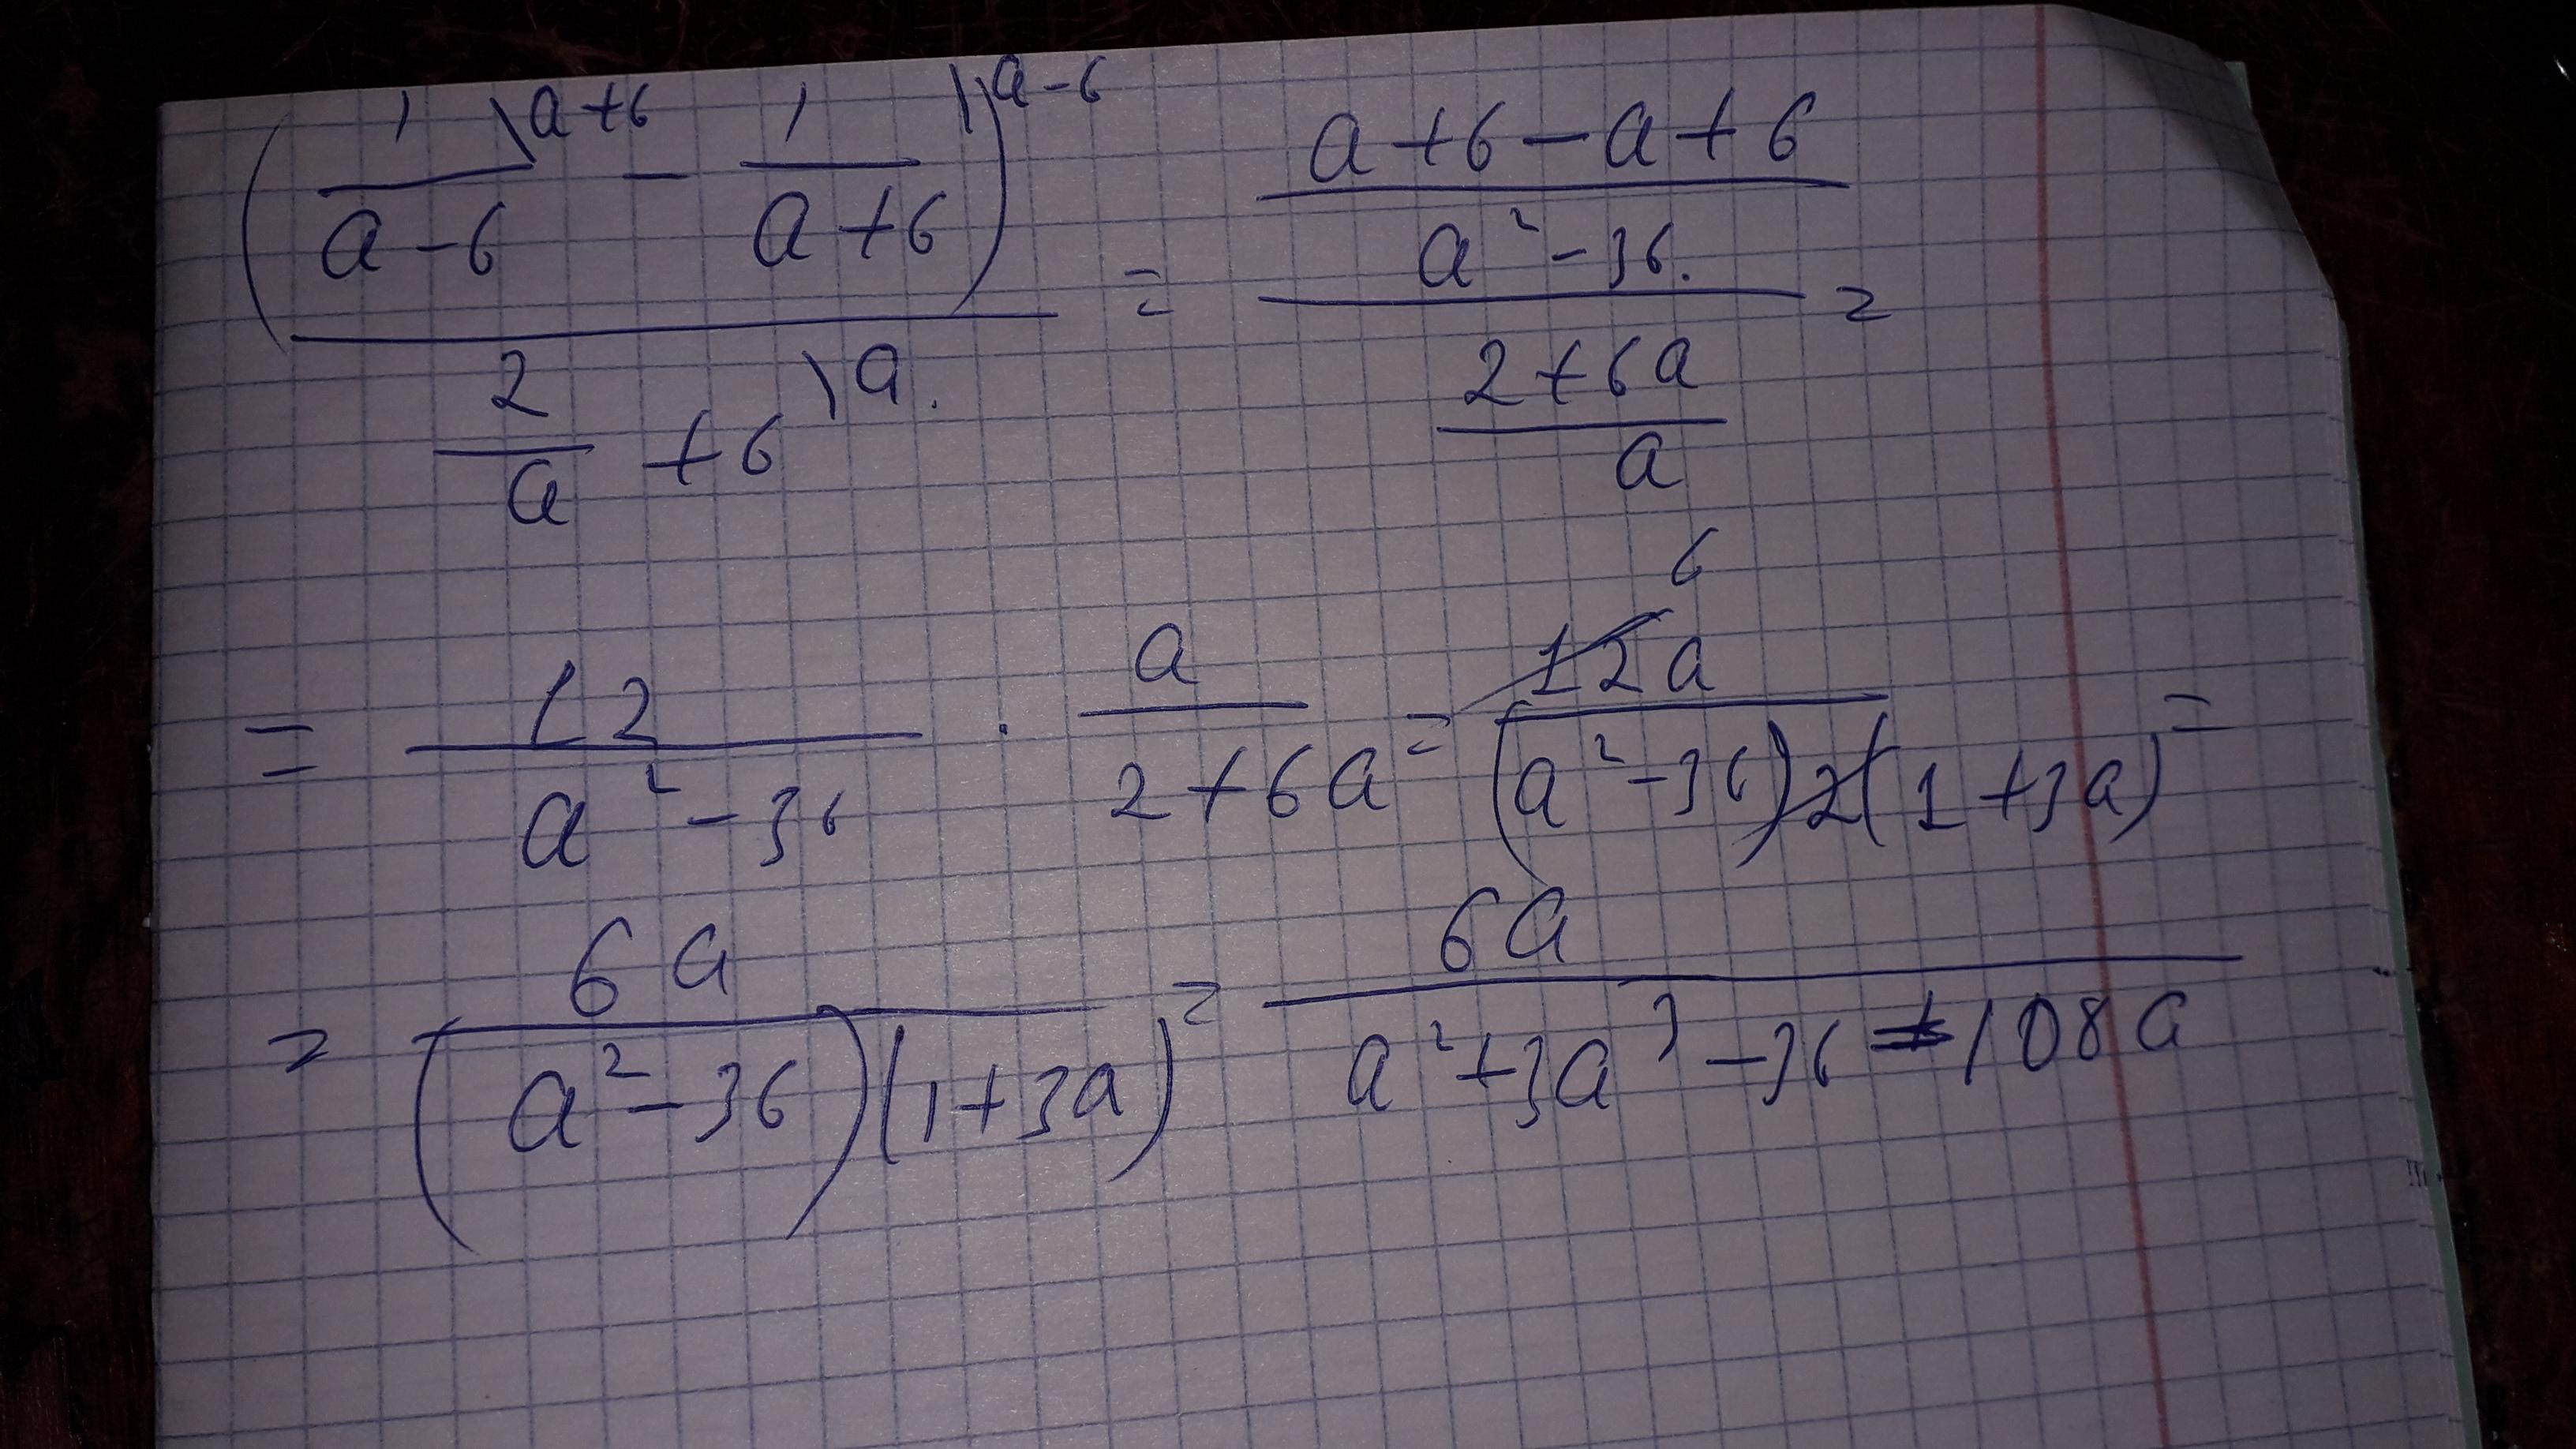 (1/(a-6) \a+6 - 1/(a+6) \a-6) / (2/a + 6 \a.) = ((a+6-a+6)/(a²-36.)) / ((2+6a)/a) =
= 12/(a²-36) · a/(2+6a) = 12a 6/((a²-36)2(1+3a)) =
= 6a/((a²-36)(1+3a)) = 6a/(a²+3a³-36-108a)